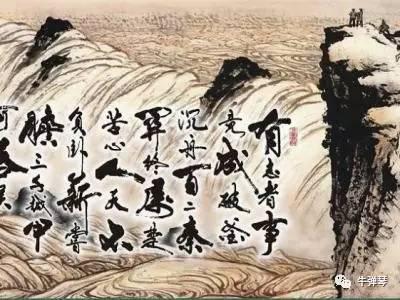 有志者事
竟成破釜
沉舟百二秦
关终属楚
苦心人天不
负卧薪尝
胆三千越甲
可吞吴
牛弹琴